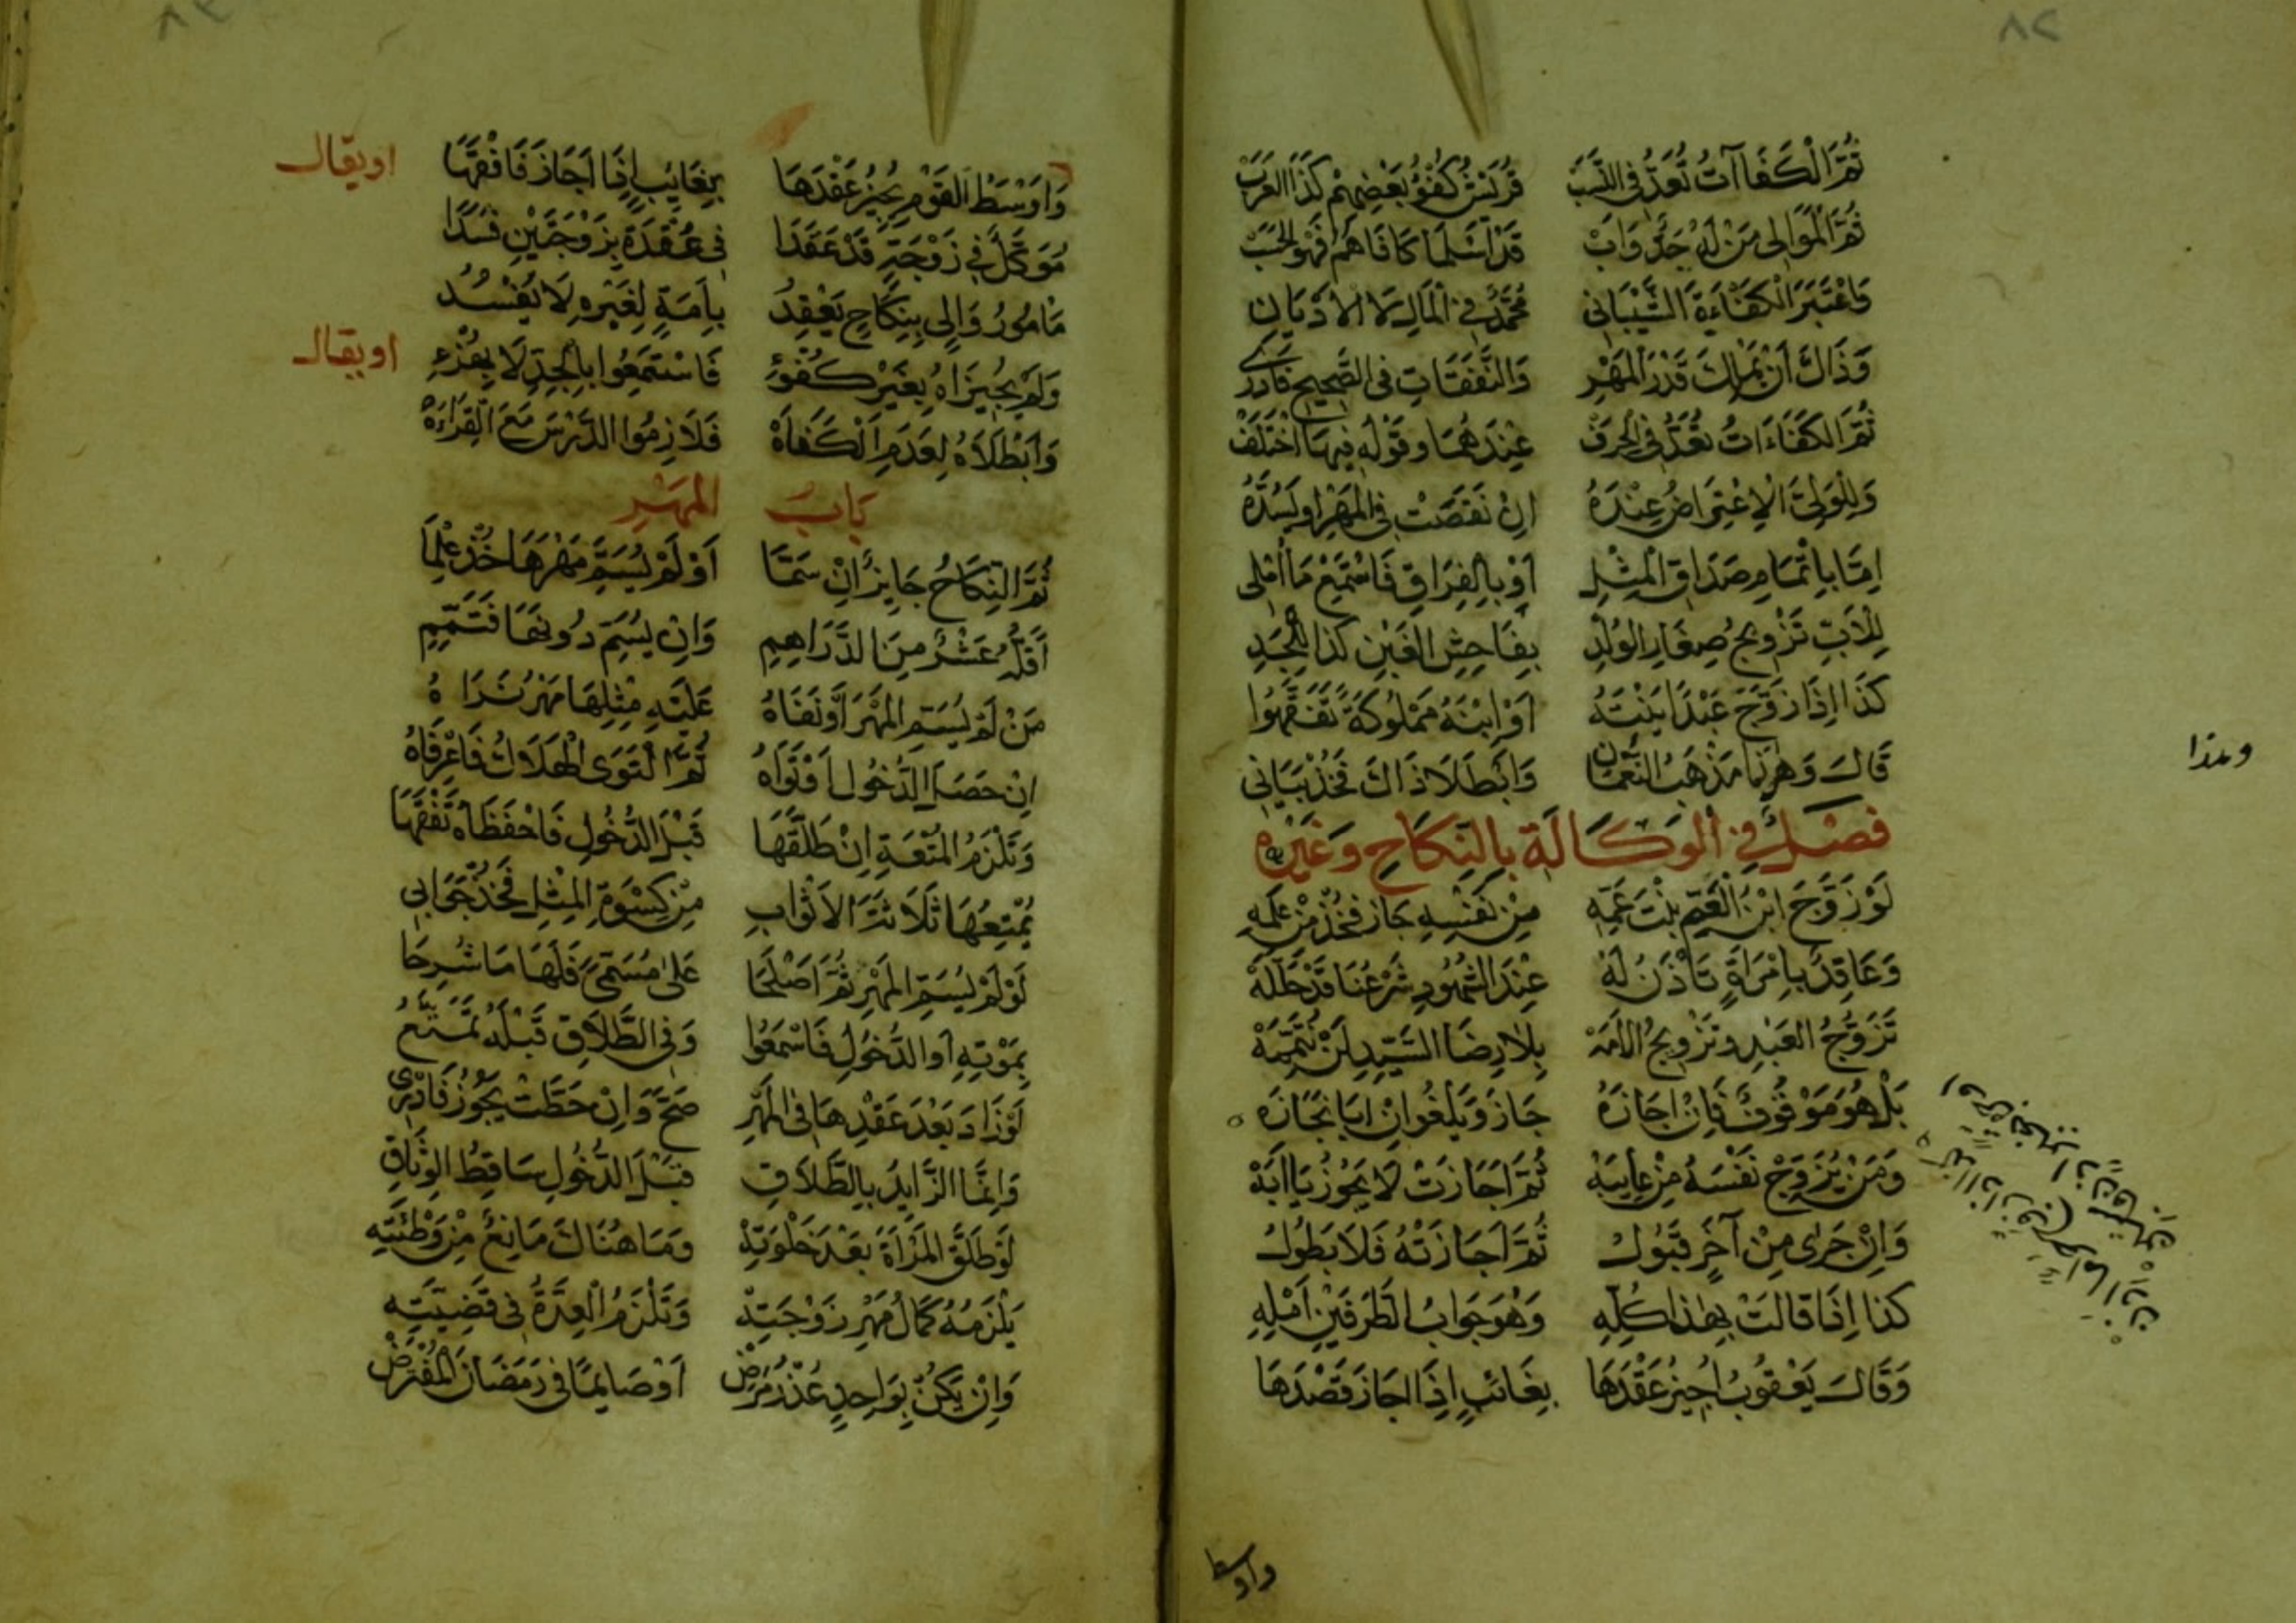 ٨٢
ثُمَّ الْكَفَاآتُ تُعَدُّ فِي النَّسَبْ قُرَيْشُ كُفْؤُ بَعْضِهِمْ كَذَا الْعَرَبْ
ثُمَّ الْمَوَالِي مَنْ لَهُ جَدٌّ وَابْ قَدْ اَسْلَمَا كَافَاهُمُ فَهْوَ الحَسَبْ
وَاعْتَبَرَ الْكَفَاءَةَ الشَّيْبَانِي مُحَمَّدٌ فِي الْمَالِ لَا الْاَدْيَانِ
وَذَاكَ أَنْ يَمْلِكَ قَدْرَ الْمَهْرِ وَالنَّفَقَاتِ فِي الصَّحِيحِ فَادْرِ
ثُمَّ الْكَفَاءَاتُ تُعَدُّ فِي الْحِرَفْ عِنْدَهُمَا وَقَوْلُهُ فِيهَا اخْتَلَفْ
وَلِلْوَلِيِّ الْاِعْتِرَاضُ عِنْدَهُ اِنْ نَقَصَتْ فِي الْمَهْرِ اَوْ يَسُدُّهُ
اِمَّا بِاِتْمَامِ صَدَاقِ الْمِثْلِ اَوْ بِالْفِرَاقِ فَاسْتَمِعْ مَا اُمْلِي
لِلْاَبِ تَزْوِيجُ صِغَارِ الْوُلْدِ بِفَاحِشِ الْغَبْنِ كَذَا لِلْجَدِّ
كَذَا اِذَا زَوَّجَ عَبْدًا بِنْتَهُ اَوْ اِبْنَهُ مَمْلُوكَةً تَفَقَّهُوا
قَالَ وَهٰذَا مَذْهَبُ النُّعْمَانِ وَاَبْطَلَا ذَاكَ فَخُذْ بَيَانِي
ولهذا
فَصْلٌ فِي الْوَكَالَةِ بِالنِّكَاحِ وَغَيْرِهِ
لَوْ زَوَّجَ ابْنُ الْعَمِّ بِنْتَ عَمِّهِ مِنْ نَفْسِهِ جَازَ فَخُذْ مِنْ عِلْمِهِ
وَعَاقِدٌ بِامْرَاَةٍ تَأْذَنُ لَهُ عِنْدَ الشُّهُودِ شَرْعُنَا قَدْ حَلَّلَهْ
تَزَوُّجُ الْعَبْدِ وَتَزْوِيجُ الْاَمَهْ بِلَا رِضَا السَّيِّدِ لَنْ نُتَمِّمَهْ
بَلْ هُوَ مَوْقُوفٌ فَاِنْ اَجَازَهُ جَازَ وَيَلْغُو اِنْ اَبَا نَجَازَهُ
وَمَنْ يُزَوِّجْ نَفْسَهُ مِنْ غَايِبَهْ ثُمَّ اَجَازَتْ لَا يَجُوزُ يَا اَبَهْ
وَاِنْ جَرٰى مِنْ آخَرٍ قَبُولُ ثُمَّ اَجَازَتْهُ فَلَا يَطُولُ
كَذَا اِذَا قَالَتْ بِهٰذَا كُلِّهِ وَهُوَ جَوَابُ الطَّرَفَيْنِ اَمْلِهِ
وَقَالَ يَعْقُوبُ اُجِيزُ عَقْدَهَا بِغَائِبٍ اِذَا اَجَازَ قَصْدَهَا
واوسط
وَاَوْسَطُ الْقَوْمِ يُجِيزُ عَقْدَهَا بِغَايِبٍ اِذَا اَجَازَ فَافْقَهَا
او يقال
مُوَكَّلٌ فِي زَوْجَةٍ قَدْ عَقَدَا فِي عُقْدَةٍ بِزَوْجَتَيْنِ فَسَدَا
مَامُورُ وَالٍ بِنِكَاحٍ يَعْقِدُ بِاَمَةٍ لِغَيْرِهِ لَا يَفْسُدُ
وَلَمْ يُجِيزَاهُ بِغَيْرِ كُفْؤِ فَاسْتَمِعُوا بِالْجِدِّ لَا بِهُزْءِ
او يقال
وَاَبْطَلَاهُ لِعَدَمِ الْكَفَاَهْ فَلَازِمُوا الدَّرْسَ مَعَ الْقِرَاءَهْ
بَابُ المَهْرِ
ثُمَّ النِّكَاحُ جَايِزٌ اِنْ سَمَّا اَوْ لَمْ يُسَمِّ مَهْرَهَا خُذْ عِلْمَا
اَقَلُّهُ عَشْرٌ مِنَ الدَّرَاهِمِ وَاِنْ يُسَمِّ دُونَهَا فَتَمِّمِ
مَنْ لَمْ يُسَمِّ الْمَهْرَ اَوْ نَفَاهُ عَلَيْهِ مِثْلِهَا مَهْرُ نَرَاهُ
اِنْ حَصَلَ الدُّخُولُ اَوْ تَوَاهُ ثُمَّ التَّوَى الْهَلَاكُ فَاعْرِفَاهُ
وَتَلْزَمُ الْمُتْعَةُ اِنْ طَلَّقَهَا قَبْلَ الدُّخُولِ فَاحْفَظَاهُ تَفْقَهَا
يُمْتِعُهَا ثَلَاثَةَ الْاَثْوَابِ مِنْ كِسْوَةِ الْمِثْلِ فَخُذْ جَوَابِي
لَوْ لَمْ يُسَمِّ الْمَهْرَ ثُمَّ اصْطَلَحَا عَلٰى مُسَمًّى فَلَهَا مَا شُرِحَا
بِمَوْتِهِ اَوِ الدُّخُولِ فَاسْمَعُوا وَفِي الطَّلَاقِ قَبْلَهُ تُمَتَّعُ
لَوْ زَادَ بَعْدَ عَقْدِهَا فِي الْمَهْرِ صَحَّ وَاِنْ حَطَّتْ يَجُوزُ فَادْرِي
وَاِنَّمَا الزَّايِدُ بِالطَّلَاقِ قَبْلَ الدُّخُولِ سَاقِطُ الْوِثَاقِ
لَوْ طَلَّقَ الْمَرْاَةَ بَعْدَ خَلْوَتِهْ وَمَا هُنَاكَ مَانِعٌ مِنْ وَطْئَتِهِ
يَلْزَمُهُ كَمَالُ مَهْرِ زَوْجَتِهْ وَتَلْزَمُ الْعِدَّةُ فِي قَضِيَّتِهِ
وَاِنْ يَكُنْ بِوَاحِدٍ عُذْرُ مَرَضْ اَوْ صَايِمًا فِي رَمَضَانَ الْمُفْتَرَضْ